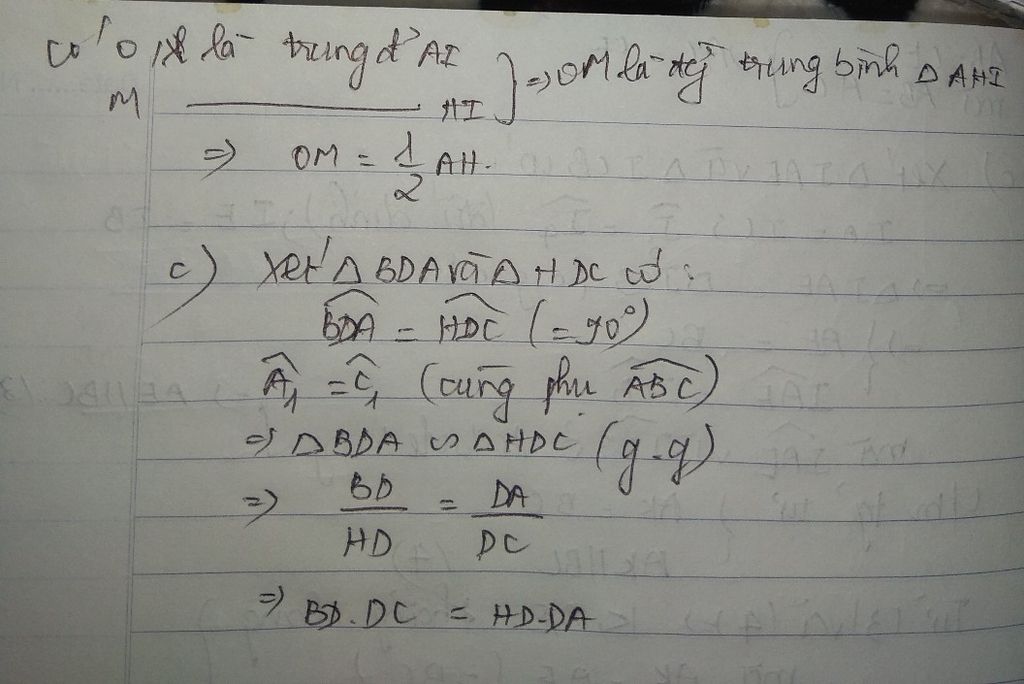 có O là trung đ' AI
M ———— HI } => OM là đg trung bình Δ AHI
=> OM = 1/2 AH.
c) Xét Δ BDA và Δ HDC có :
BDA = HDC (= 90°)
A1 = C1 (cùng phụ ABC)
=> Δ BDA ∽ Δ HDC (g-g)
=> BD/HD = DA/DC
=> BD.DC = HD.DA